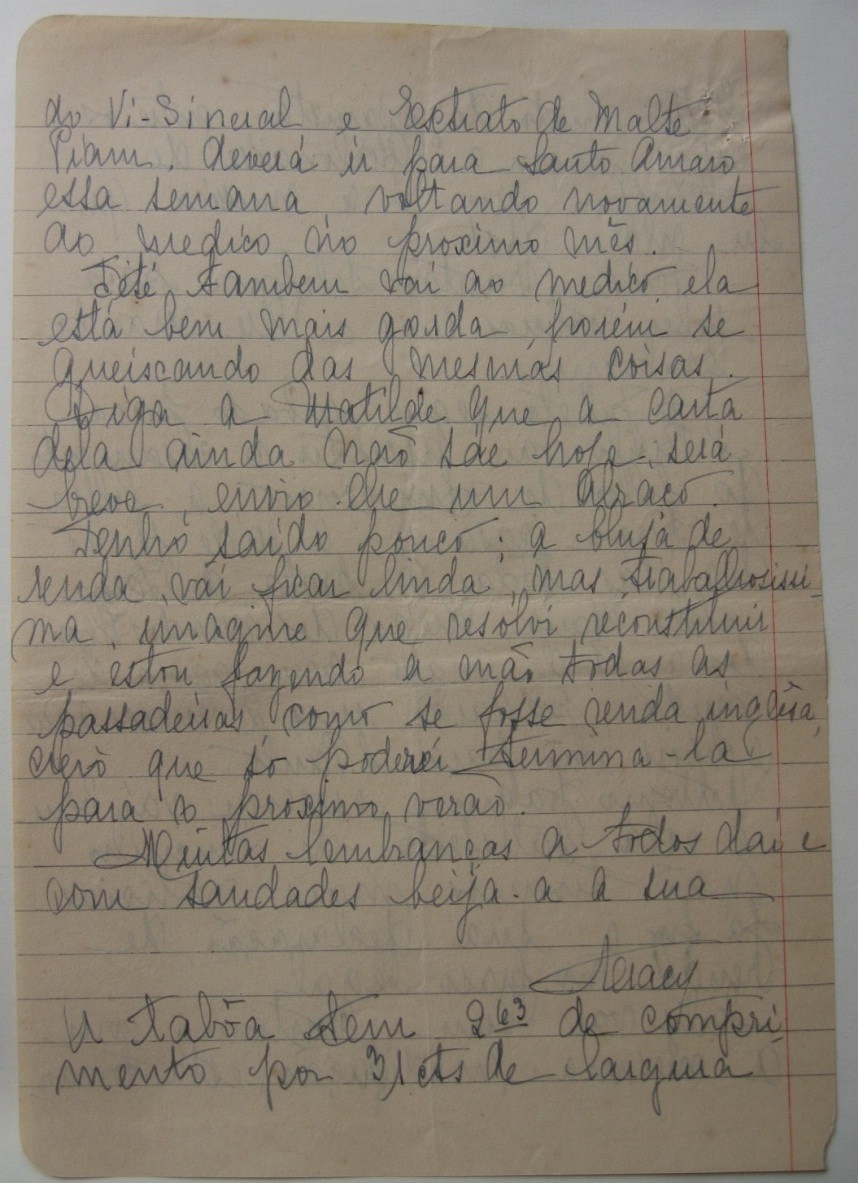 do Vi-Sineral e Extrato de Malte
Piam. deverá ir para Santo Amaro
essa semana, voltando novamente
ao medico no proximo mês.
Teté tambem vai ao medico, ela
está bem mais gorda, porém se
queixando das mesmas coisas.
Diga a Matilde que a carta
dela ainda não sae hoje, será
breve, envio-lhe um abraço.
Tenho saído pouco; a blusa de
renda, vai ficar linda, mas trabalhosissi-
ma, imagine que resolvi reconstituir
e estou fazendo a mão todas as
passadeiras, como se fosse renda inglêsa,
creio que só poderei termina-la
para o proximo verão.
Muitas lembranças a todos daí e
com saudades beija-a a sua
Aracy
A tabôa tem 2 63 de compri-
mento por 31 cts de largura